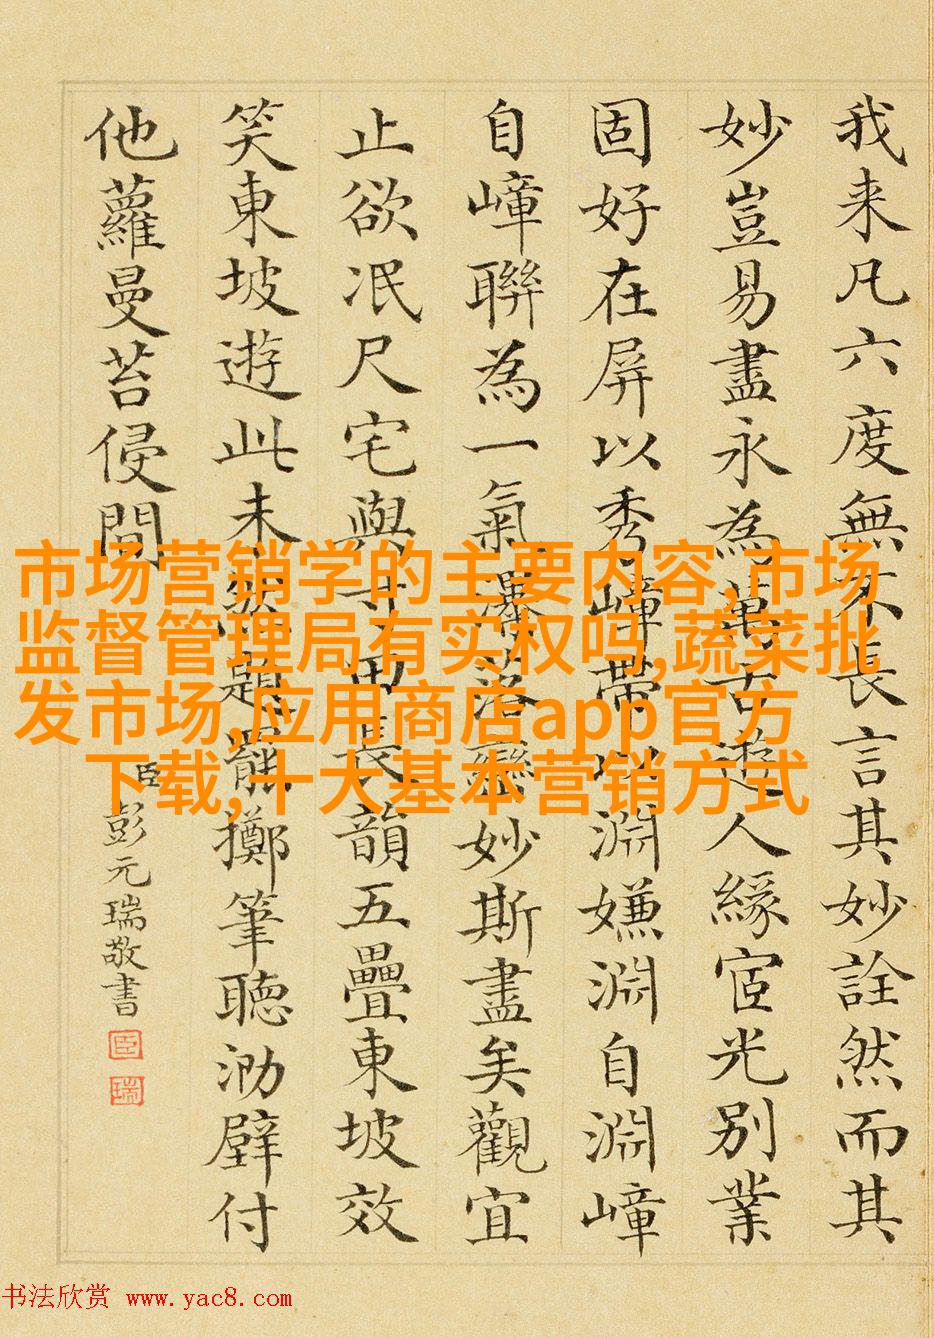 我来凡六度無不長言其妙詮然而其
妙豈易盡永為萬古遊人緣宧光別業
固好在屏以秀嶂帶以淵嫌淵自淵嶂
自嶂聯為一氣瀑落罨妙斯盡矣觀宜
止欲泯尺宅與寸田長韻五疊東坡效
笑東坡遊此未題罷擲筆聽泐壁付
他蘿曼苔侵間
臣彭元瑞敬書
臣
瑞
市场营销学的主要内容,市场
监督管理局有实权吗,蔬菜批
发市场,应用商店app官方
下载,十大基本营销方式
书法欣赏 www.yac8.com